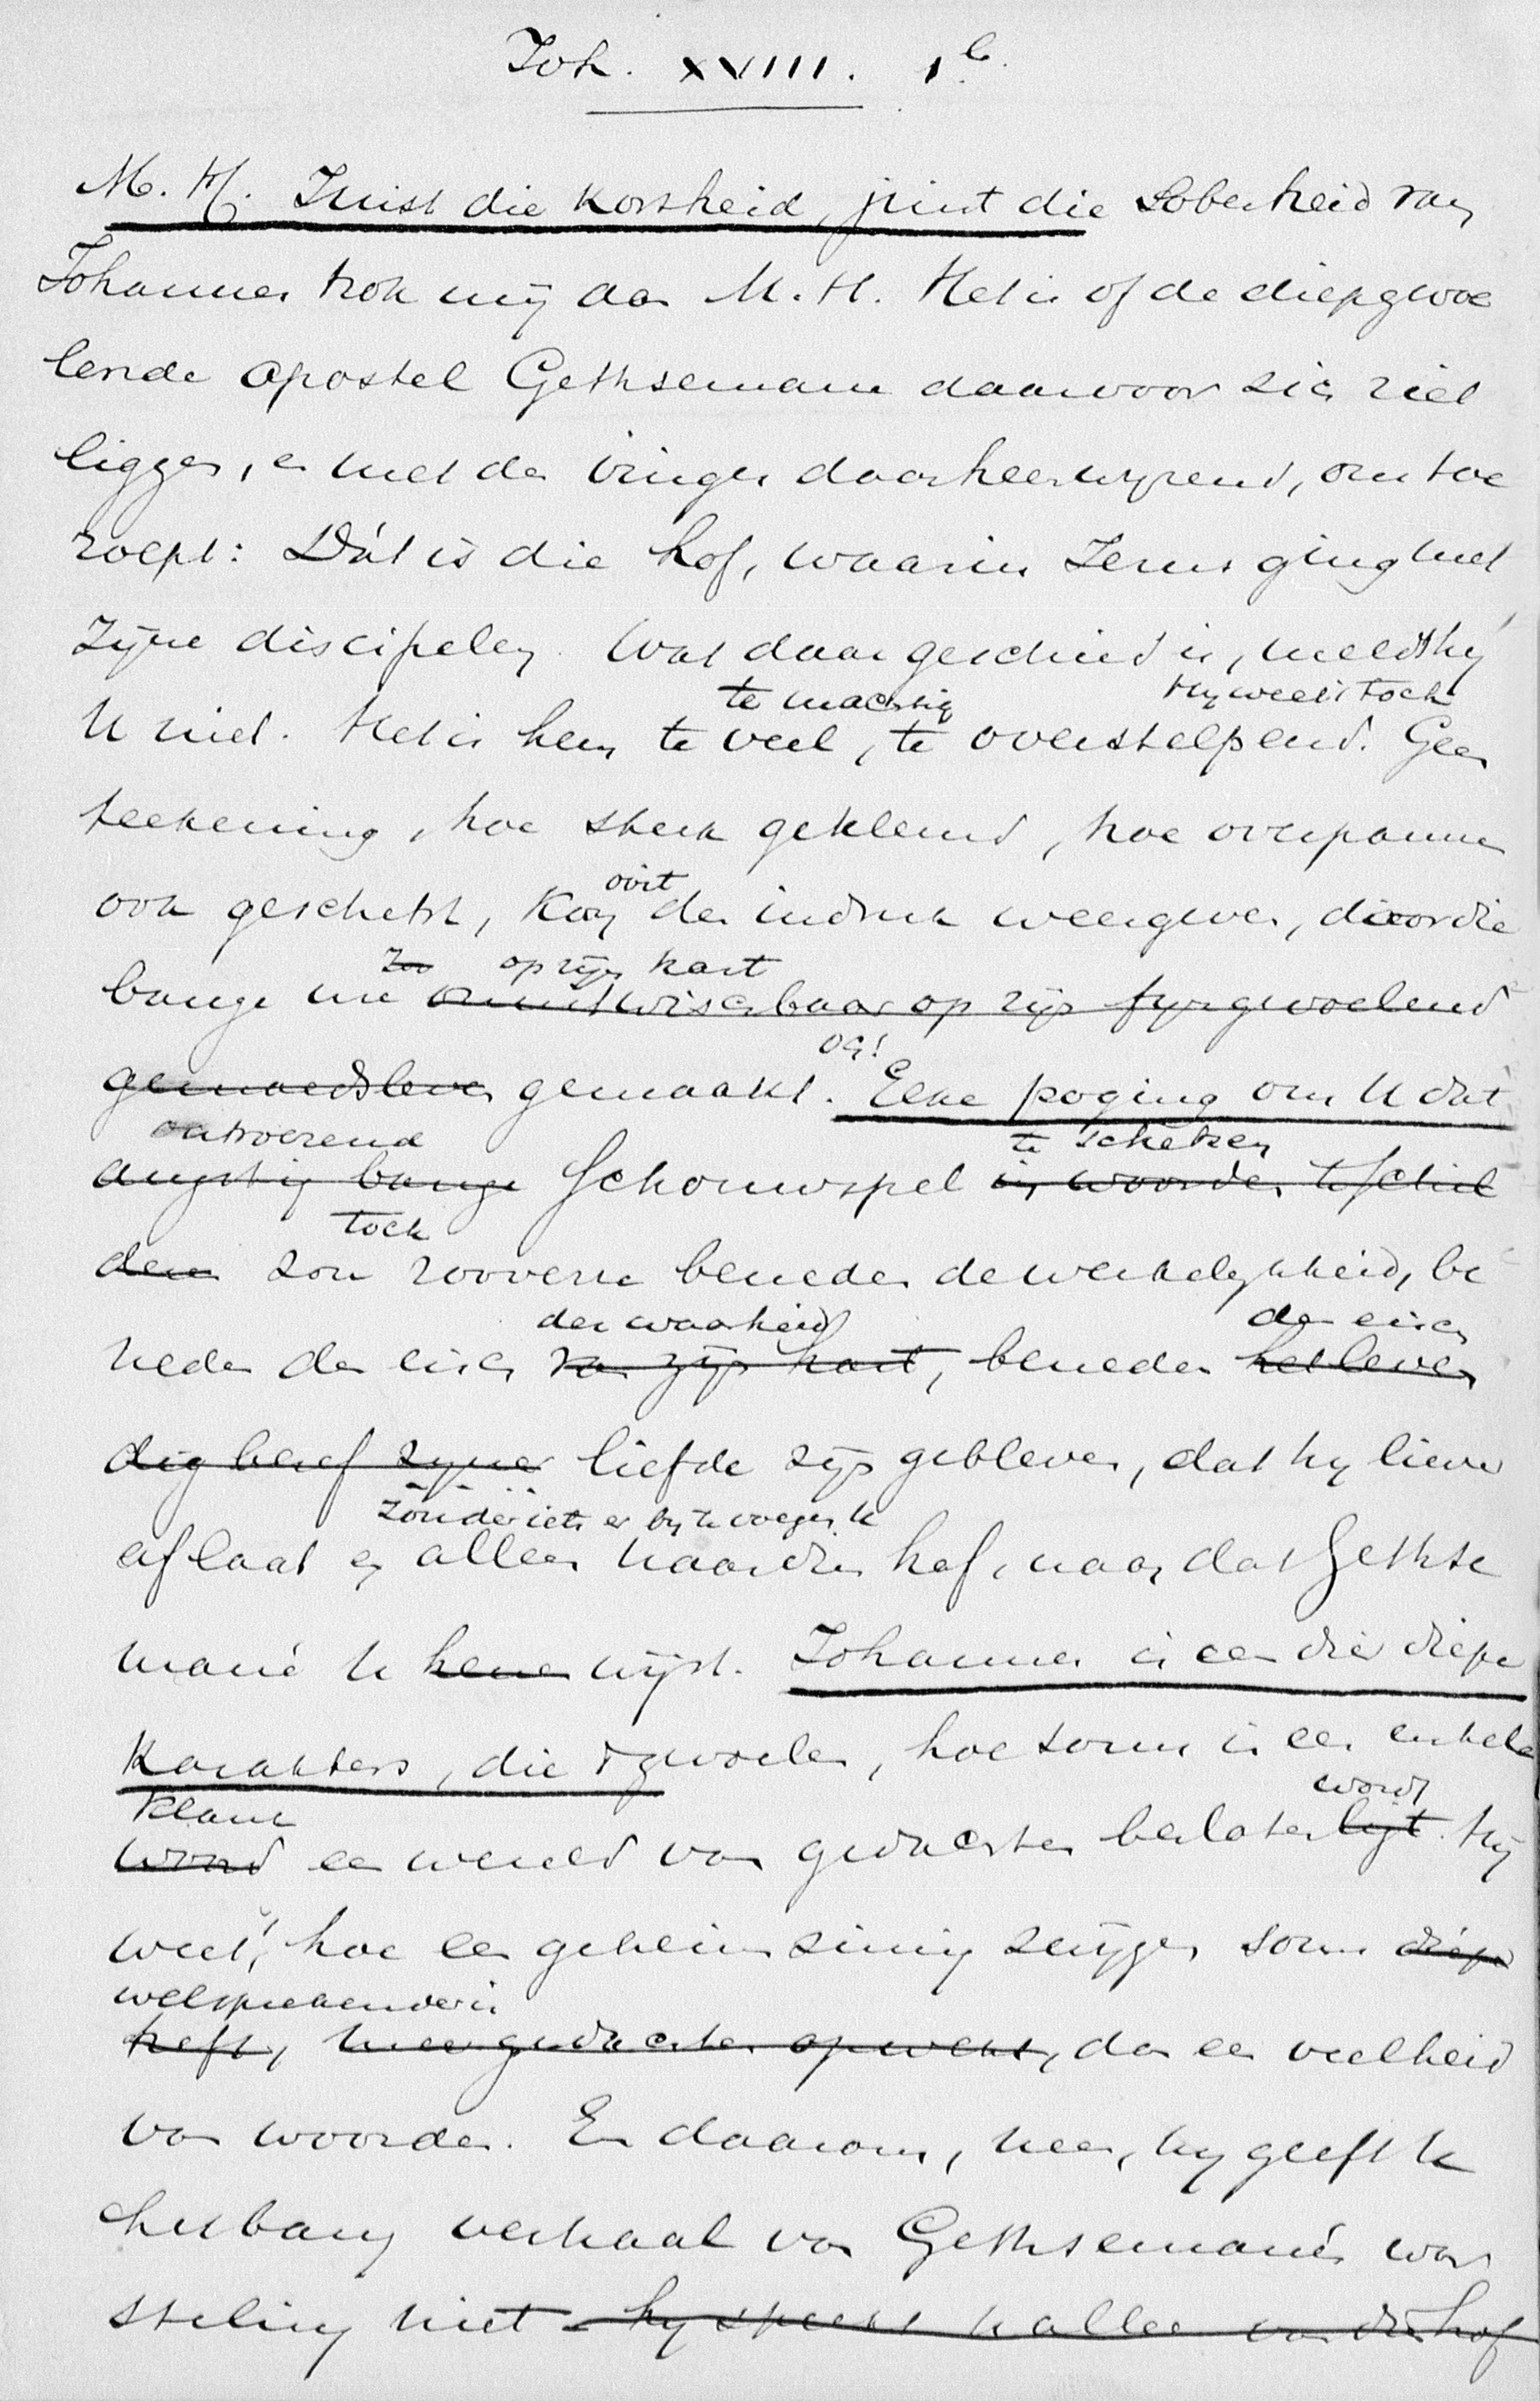 Joh. XVIII. 1b.
M. H. Juist die kortheid, juist die soberheid van
Johannes trok mij aan M. H. Het is of de diepgevoe
lende apostel Gethsemane daar voor zich ziet
liggen, en met den vinger daarheenwijzend, ons toe
roept: Dát is die hof, waarin Jezus ging met
zijne discipelen. Wat daar geschied is, meldt hij
te machtig Hij weet 't toch
U niet. Het is hem te veel, te overstelpend. Geen
teekening, hoe sterk gekleurd, hoe overspannen
ooit
ook geschetst, kan den indruk weergeven, door die
zoo op zijn hart
bange ure onuitwischbaar op zijn fijngevoelend
och!
gemoedsleven gemaakt. Elke poging om U dat
ontroerend te schetsen
angstig bange schouwspel in woorden te schil
toch
deren zou zoo verre beneden de werkelijkheid, be
der waarheid den eisch
neden den eisch van zijn hart, beneden het leven
dig besef zijner liefde zijn gebleven, dat hij liever
zonder iets er bij te voegen U
aflaat en alleen naar dien hof, naar dat Gethse
mané U henen wijst. Johannes is een dier diepe
karakters, die 't gevoelen, hoe soms in een enkele
klank wordt
woord een wereld van gedachten besloten ligt. Hij
weet, hoe een geheimzinnig zwijgen soms diepe
welsprekender is
heeft, meer gedachten opwekt, dan een veelheid
van woorden. En daarom, neen, hij geeft U
het bang verhaal van Gethsemané's wor
steling niet - hij spreekt U alleen van dien hof